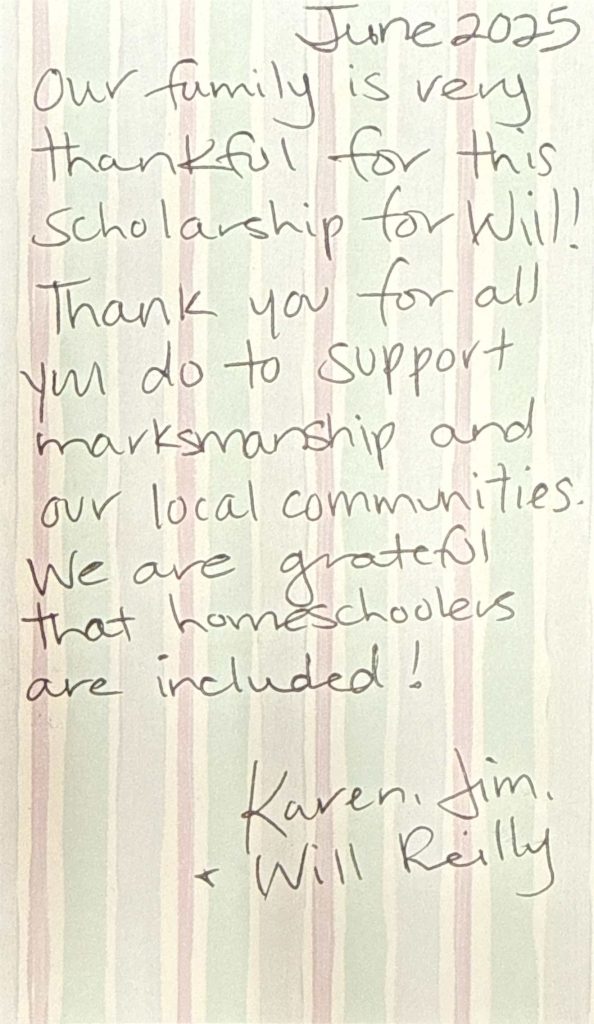 June 2025
Our family is very
thankful for this
scholarship for Will!
Thank you for all
you do to support
marksmanship and
our local communities.
We are grateful
that homeschoolers
are included!
Karen, Jim,
+ Will Reilly